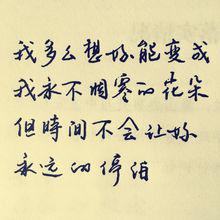 我多么想妳能变成
我永不凋零的花朵
但時间不会让妳
永远的停泊